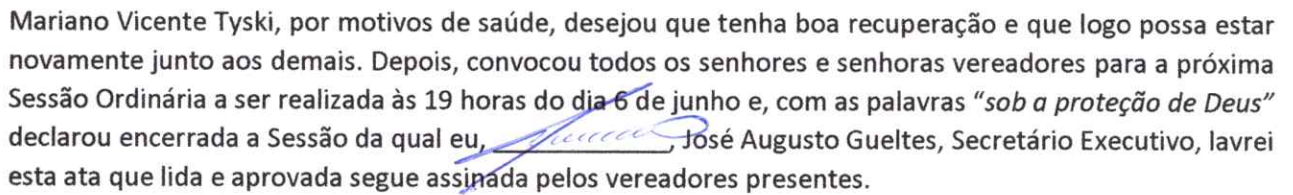 Mariano Vicente Tyski, por motivos de saúde, desejou que tenha boa recuperação e que logo possa estar
novamente junto aos demais. Depois, convocou todos os senhores e senhoras vereadores para a próxima
Sessão Ordinária a ser realizada às 19 horas do dia 6 de junho e, com as palavras “sob a proteção de Deus”
declarou encerrada a Sessão da qual eu, ________________, José Augusto Gueltes, Secretário Executivo, lavrei
esta ata que lida e aprovada segue assinada pelos vereadores presentes.